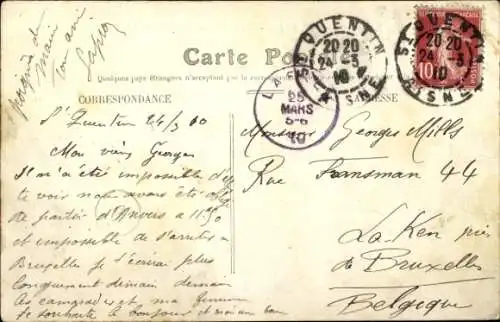 Carte Postale
Quelques pays étrangers n'acceptent pas la correspondance
CORRESPONDANCE
ADRESSE
ST QUENTIN
20 20
24 - 3
10
AISNE
ST QUENTIN
20 20
24 - 3
10
AISNE
10
25
MARS
5-6
10
St Quentin 24/3 10
Mon vieux Georges
Il m'a été impossible d'
te voir nous avons été
de partir d'Anvers a 11.50
et impossible de s'arreter a
Bruxelles je t'écrirai plus
longuement demain
les camarades et ma femme
te souhaite le bonjour et moi
poignée de
main
ton ami
Monsieur Georges Mills
Rue Fransman 44
La Ken près
de Bruxelles
Belgique